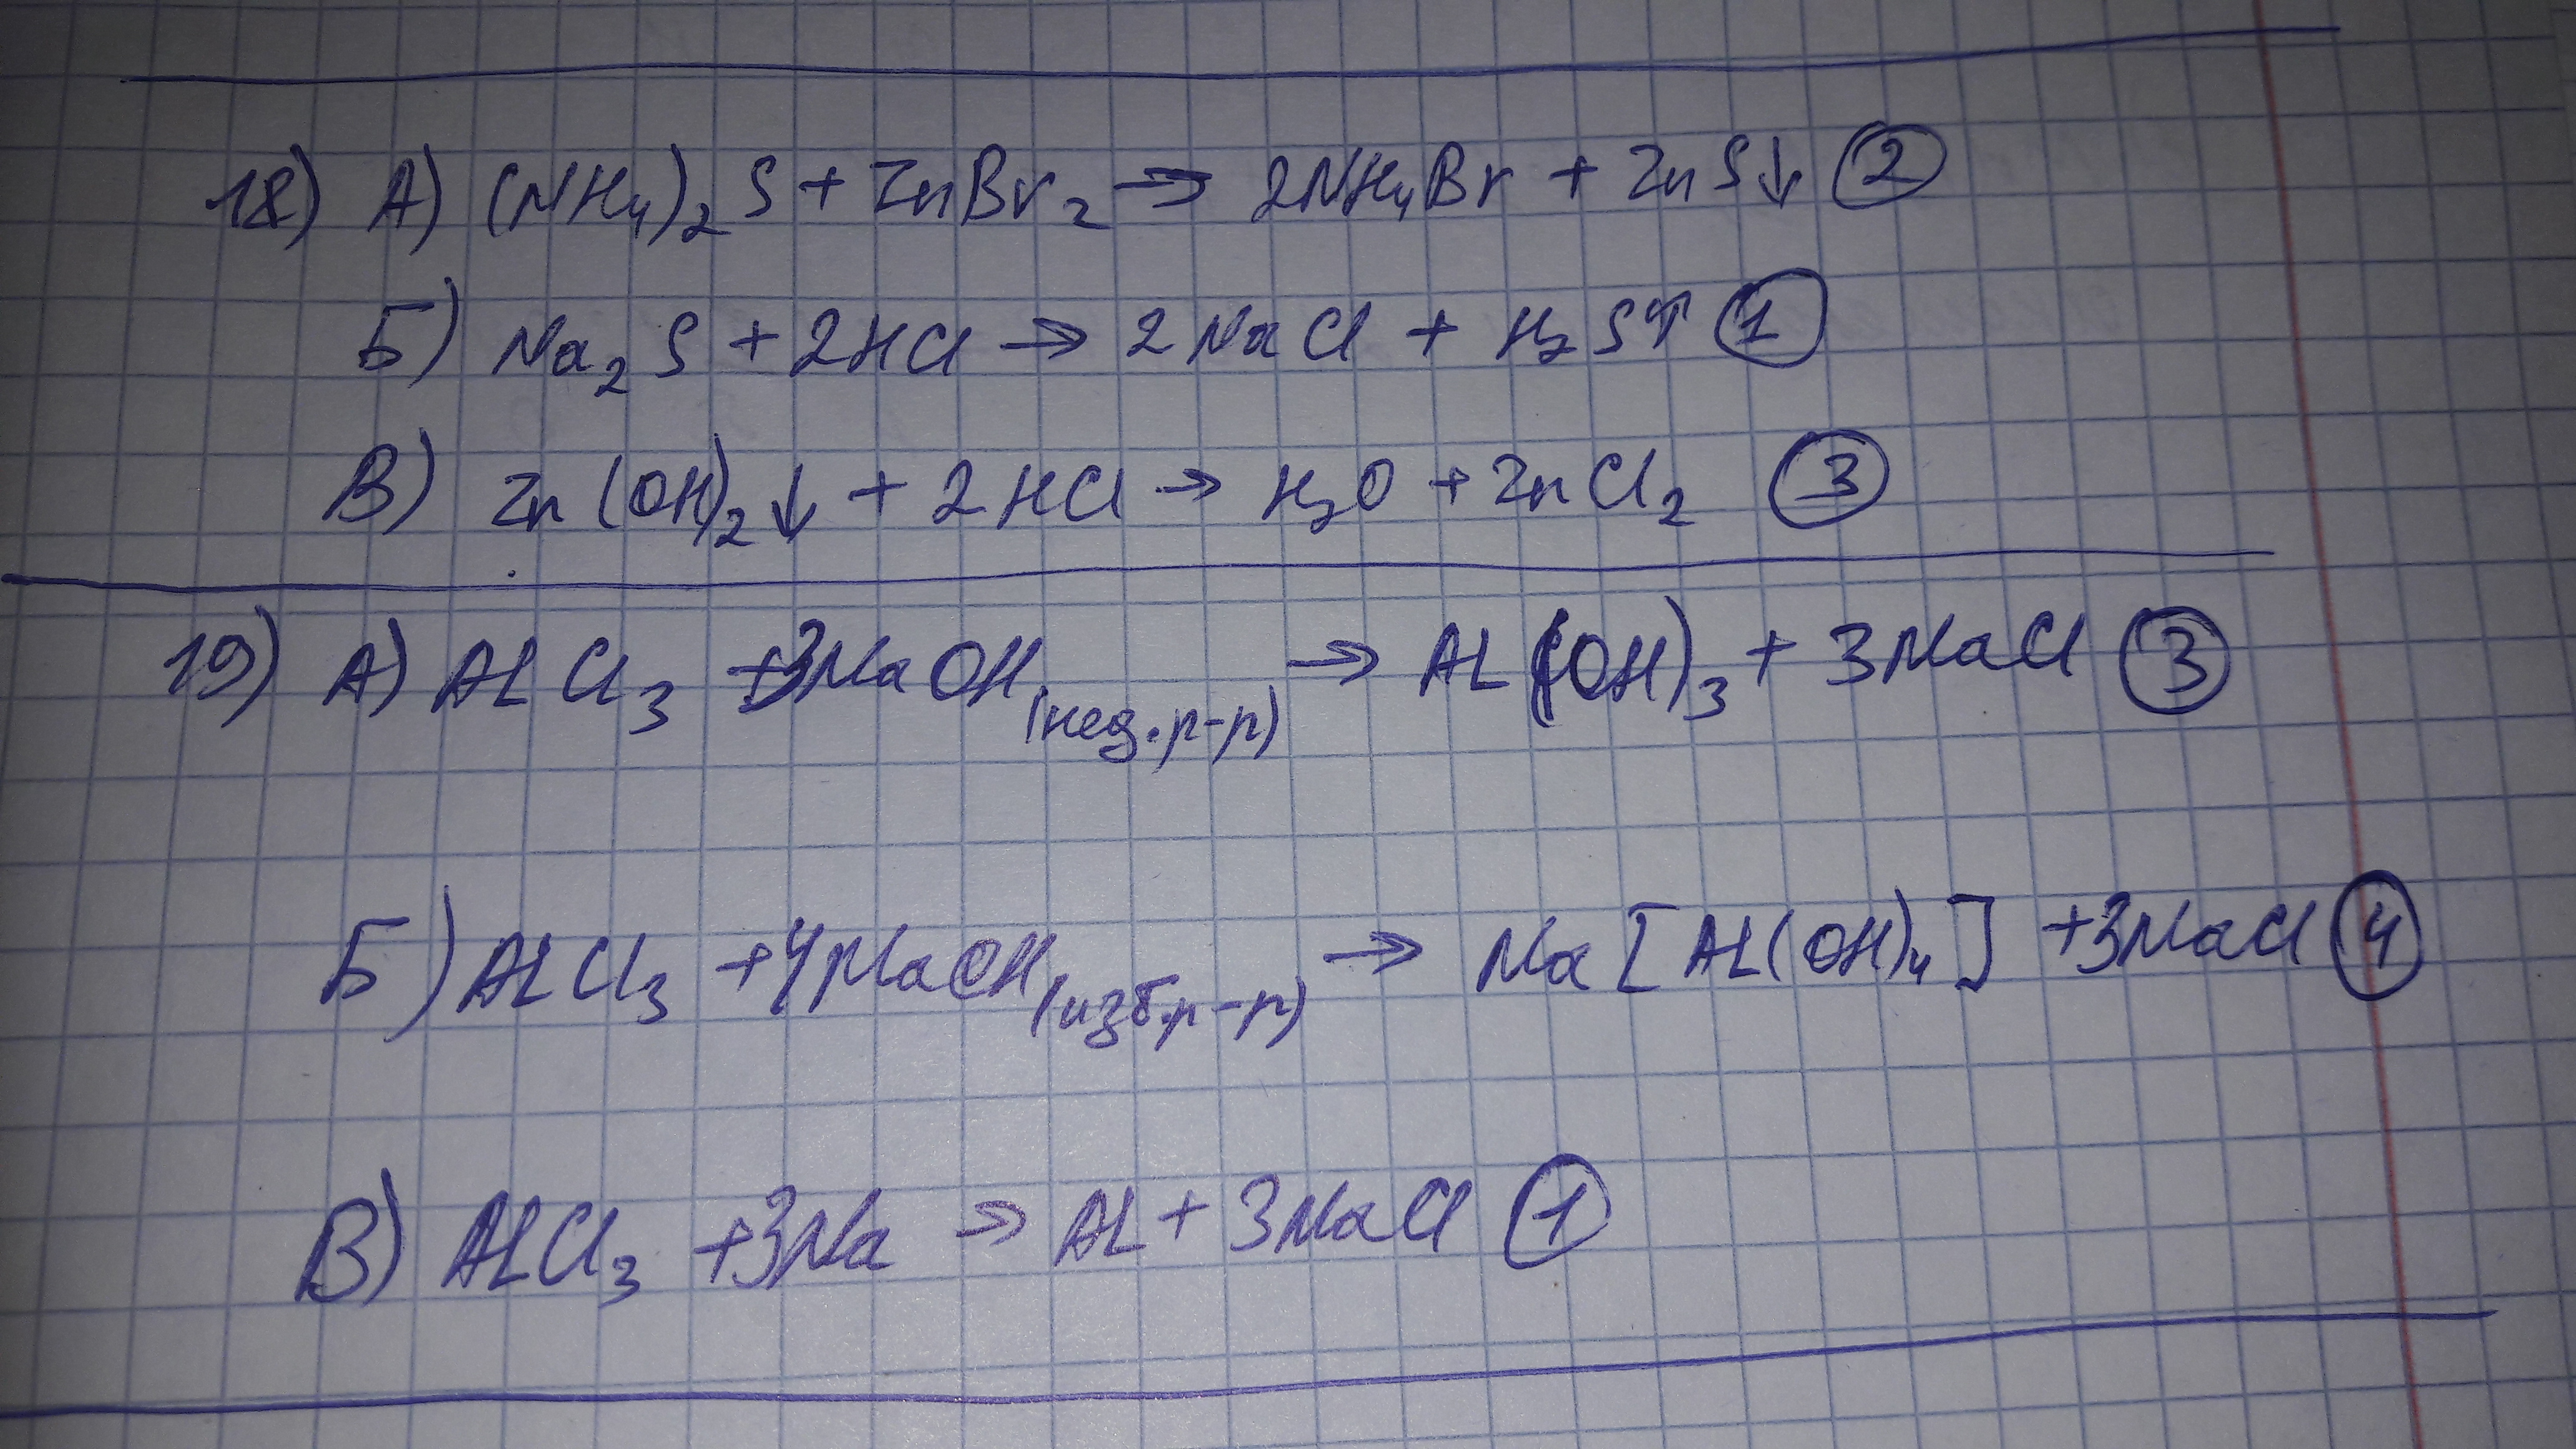 18) А) (NH₄)₂S + ZnBr₂ → 2NH₄Br + ZnS↓ ②
Б) Na₂S + 2HCl → 2NaCl + H₂S↑ ①
В) Zn(OH)₂↓ + 2HCl → H₂O + ZnCl₂ ③
19) А) AlCl₃ + 3NaOH (нед. р-р) → Al(OH)₃ + 3NaCl ③
Б) AlCl₃ + 4NaOH (изб. р-р) → Na[Al(OH)₄] + 3NaCl ④
В) AlCl₃ + 3Na → Al + 3NaCl ①